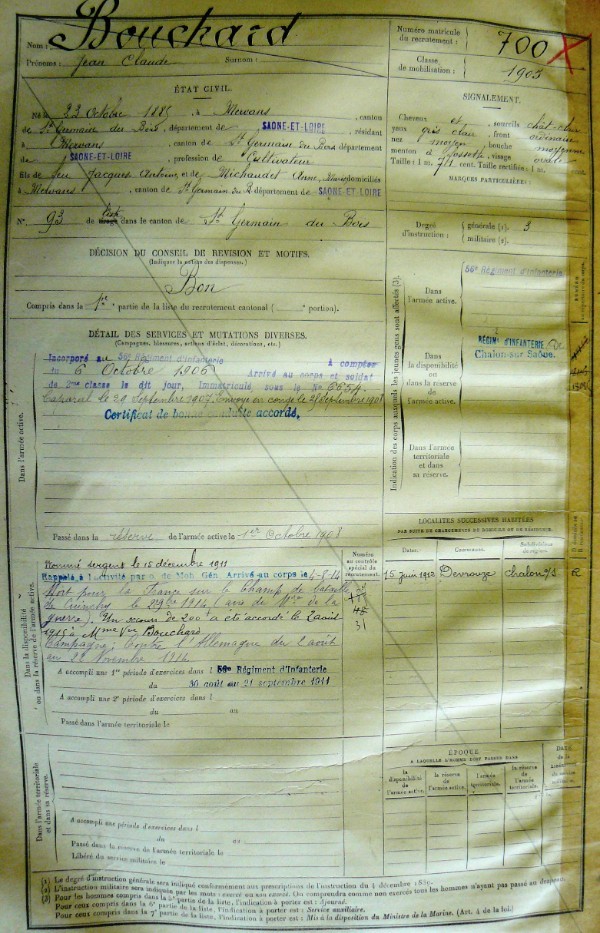 Nom : Bouchard
Prénoms : Jean Claude Surnom :
Numéro matricule du recrutement : 700
Classe de mobilisation : 1905
ÉTAT CIVIL.
Né le 22 Octobre 1885, à Mervans, canton
de St Germain du Bois, département de SAONE-ET-LOIRE, résidant
à Mervans, canton de St Germain du Bois département
de SAONE-ET-LOIRE, profession de Cultivateur
fils de feu Jacques Antoine et de Michaudet Anne, domiciliés
à Mervans, canton de St Germain du B département de SAONE-ET-LOIRE
N° 93 de liste dans le canton de St Germain du Bois
SIGNALEMENT.
Cheveux et sourcils chât-clair
yeux gris clair, front ordinaire
nez moyen, bouche moyenne
menton à fossette, visage ovale
Taille : 1 m. 711 cent. Taille rectifiée : 1 m.
MARQUES PARTICULIÈRES :
Degré d'instruction : générale (1). 3
militaire (2).
DÉCISION DU CONSEIL DE REVISION ET MOTIFS.
(Indiquer la nature des dispenses.)
Bon
Compris dans la 1re partie de la liste du recrutement cantonal ( portion).
DÉTAIL DES SERVICES ET MUTATIONS DIVERSES.
(Campagnes, blessures, actions d'éclat, décorations, etc.)
Incorporé au 56e Régiment d'infanterie à compter
du 6 Octobre 1906 Arrivé au corps et soldat
de 2me classe le dit jour, Immatriculé sous le N°
Caporal le 29 Septembre 1907. Envoyé en congé le 28 Septembre 1908
Certificat de bonne conduite accordé.
Dans l'armée active.
Passé dans la réserve de l'armée active le 1er Octobre 1908
Indication des corps auxquels les jeunes gens sont affectés (3).
Dans l'armée active.
56e Régiment d'Infanterie
Dans la disponibilité ou dans la réserve de l'armée active.
RÉGIMt D'INFANTERIE de
Chalon-sur-Saône.
Dans l'armée territoriale et dans sa réserve.
LOCALITÉS SUCCESSIVES HABITÉES
PAR SUITE DE CHANGEMENTS DE DOMICILE OU DE RÉSIDENCE.
Dates. Communes. Subdivisions de région.
15 Juin 1912 Devrouze Chalon s/S R
Dans la disponibilité ou dans la réserve de l'armée active.
Numéro au contrôle spécial du recrutement.
31
Nommé sergent le 15 décembre 1911
Rappelé à l'activité par o de Mob Gén. Arrivé au corps le 4-8-14
Mort pour la France sur le champ de bataille
le 22 9bre 1914 (avis de Mre de la
guerre). Un secours de 200f a été accordé le 2 août
1915 à Mme Vve Bouchard
Campagne : Contre l'Allemagne du 2 août
au 22 Novembre 1914
A accompli une 1re période d'exercices dans l 56e Régiment d'Infanterie
du 30 août au 21 septembre 1911
A accompli une 2e période d'exercices dans l
du au
Passé dans l'armée territoriale le
Dans l'armée territoriale et dans sa réserve.
A accompli une période d'exercices dans l
du au
Passé dans la réserve de l'armée territoriale le
Libéré du service militaire le
ÉPOQUE
A LAQUELLE L'HOMME DOIT PASSER DANS
la disponibilité de l'armée active.
la réserve de l'armée active.
l'armée territoriale.
la réserve de l'armée territoriale.
(1) Le degré d'instruction générale sera indiqué conformément aux prescriptions de l'instruction du 4 décembre
(2) L'instruction militaire sera indiquée par les mots : exercé ou non exercé. On comprendra comme non exercés tous les hommes n'ayant pas passé au
(3) Pour les hommes compris dans la 5e partie de la liste, l'indication à porter est : Ajourné.
Pour ceux compris dans la 6e partie de la liste, l'indication à porter est : Service auxiliaire.
Pour ceux compris dans la 7e partie de la liste, l'indication à porter est : Mis à la disposition du Ministre de la Marine. (Art. 4 de la loi)